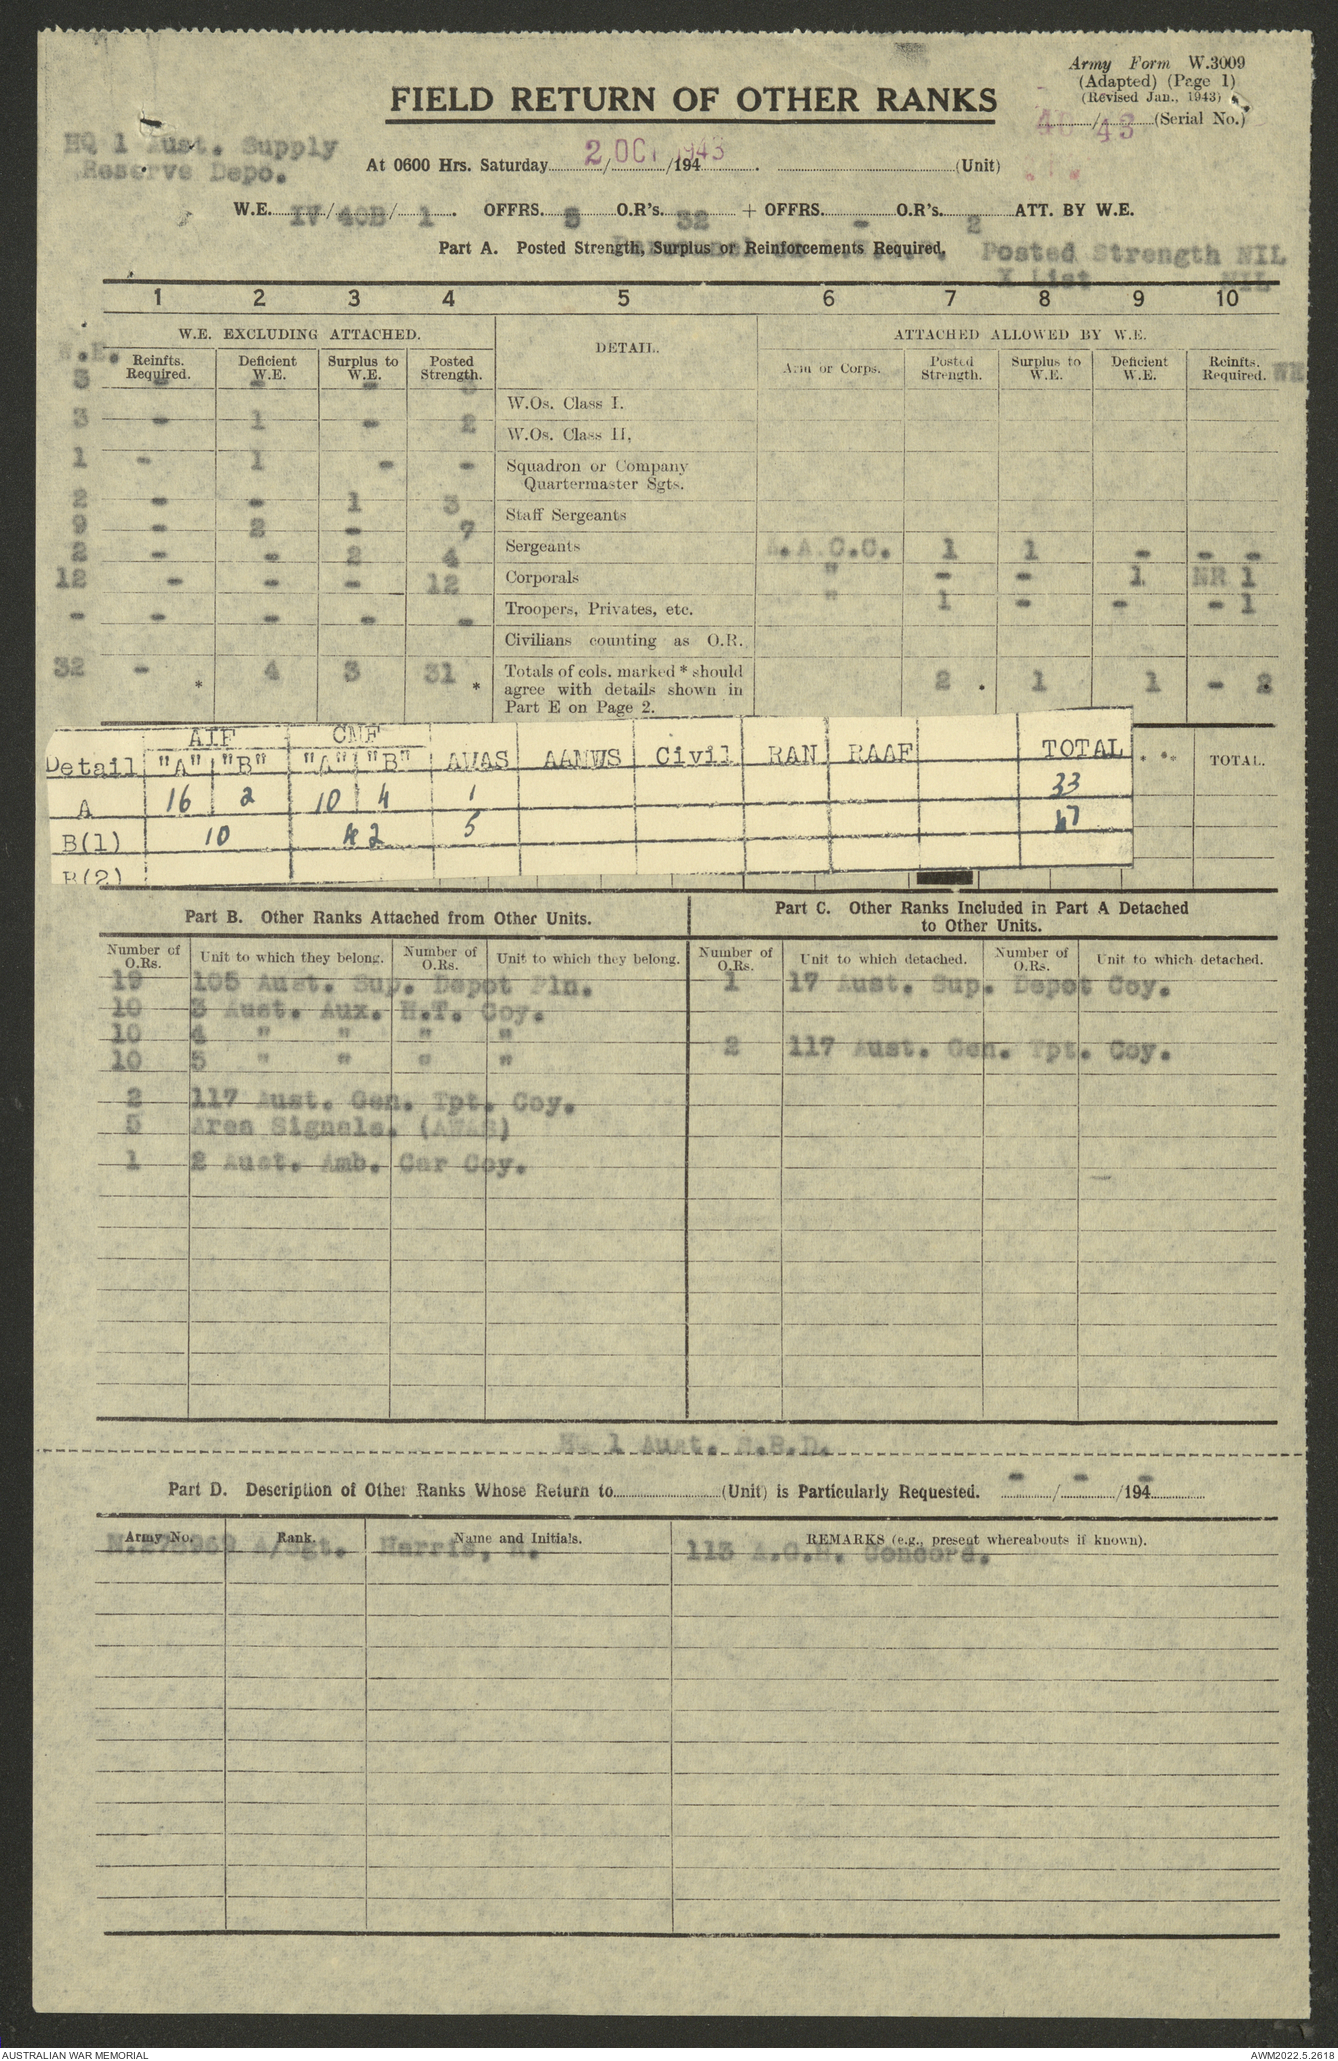 Army Form W.3009
(Adapted) (Page 1)
(Revised Jan., 1943)
FIELD RETURN OF OTHER RANKS
/43 (Serial No.)
HQ 1 Aust. Supply
Reserve Depo.
At 0600 Hrs. Saturday 2 OCT 1943 /194 . (Unit)
W.E. IV / 40B / 1 . OFFRS. 5 O.R's. 32 + OFFRS. - O.R's. 2 ATT. BY W.E.
Part A. Posted Strength, Surplus or Reinforcements Required. Posted Strength NIL
X List NIL
1 2 3 4 5 6 7 8 9 10
W.E. EXCLUDING ATTACHED. DETAIL. ATTACHED ALLOWED BY W.E.
W.E. Reinfts. Required. Deficient W.E. Surplus to W.E. Posted Strength. Arm or Corps. Posted Strength. Surplus to W.E. Deficient W.E. Reinfts. Required.
3 - - - 3 W.Os. Class I.
3 - 1 - 2 W.Os. Class II,
1 - 1 - - Squadron or Company
Quartermaster Sgts.
2 - - 1 3 Staff Sergeants
9 - 2 - 7 Sergeants A.A.C.C. 1 1 - - -
2 - - 2 4 Corporals " - - 1 NR 1
12 - - - 12 Troopers, Privates, etc. " 1 - - - 1
- - - - - Civilians counting as O.R.
32 - * 4 3 31 * Totals of cols. marked * should
agree with details shown in
Part E on Page 2. 2 . 1 1 - 2
AIF CMF
Detail "A" "B" "A" "B" AWAS AAMWS Civil RAN RAAF TOTAL TOTAL.
A 16 2 10 4 1 33
B(1) 10 42 5 57
B(2)
Part B. Other Ranks Attached from Other Units.
Part C. Other Ranks Included in Part A Detached
to Other Units.
Number of O.Rs. Unit to which they belong. Number of O.Rs. Unit to which they belong. Number of O.Rs. Unit to which detached. Number of O.Rs. Unit to which detached.
19 105 Aust. Sup. Depot Pln. 1 17 Aust. Sup. Depot Coy.
10 3 Aust. Aux. H.T. Coy.
10 4 " " " "
10 5 " " " " 2 117 Aust. Gen. Tpt. Coy.
2 117 Aust. Gen. Tpt. Coy.
5 Area Signals. (AWAS)
1 2 Aust. Amb. Car Coy.
HQ 1 Aust. S.R.D.
Part D. Description of Other Ranks Whose Return to (Unit) is Particularly Requested. - / - /194 -
Army No. Rank. Name and Initials. REMARKS (e.g., present whereabouts if known).
A/Sgt. Harris, 113 A.G.H. Concord.
AUSTRALIAN WAR MEMORIAL
AWM2022.5.2618